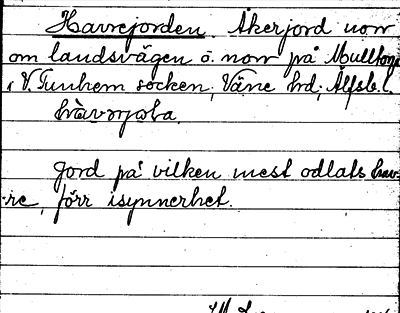 Havrejorden. Åkerjord norr
om landsvägen o. norr på Mulltorp
i V. Tunhem socken, Väne hd; Älfsb. l.
Jord på vilken mest odlats hav-
re, förr isynnerhet.